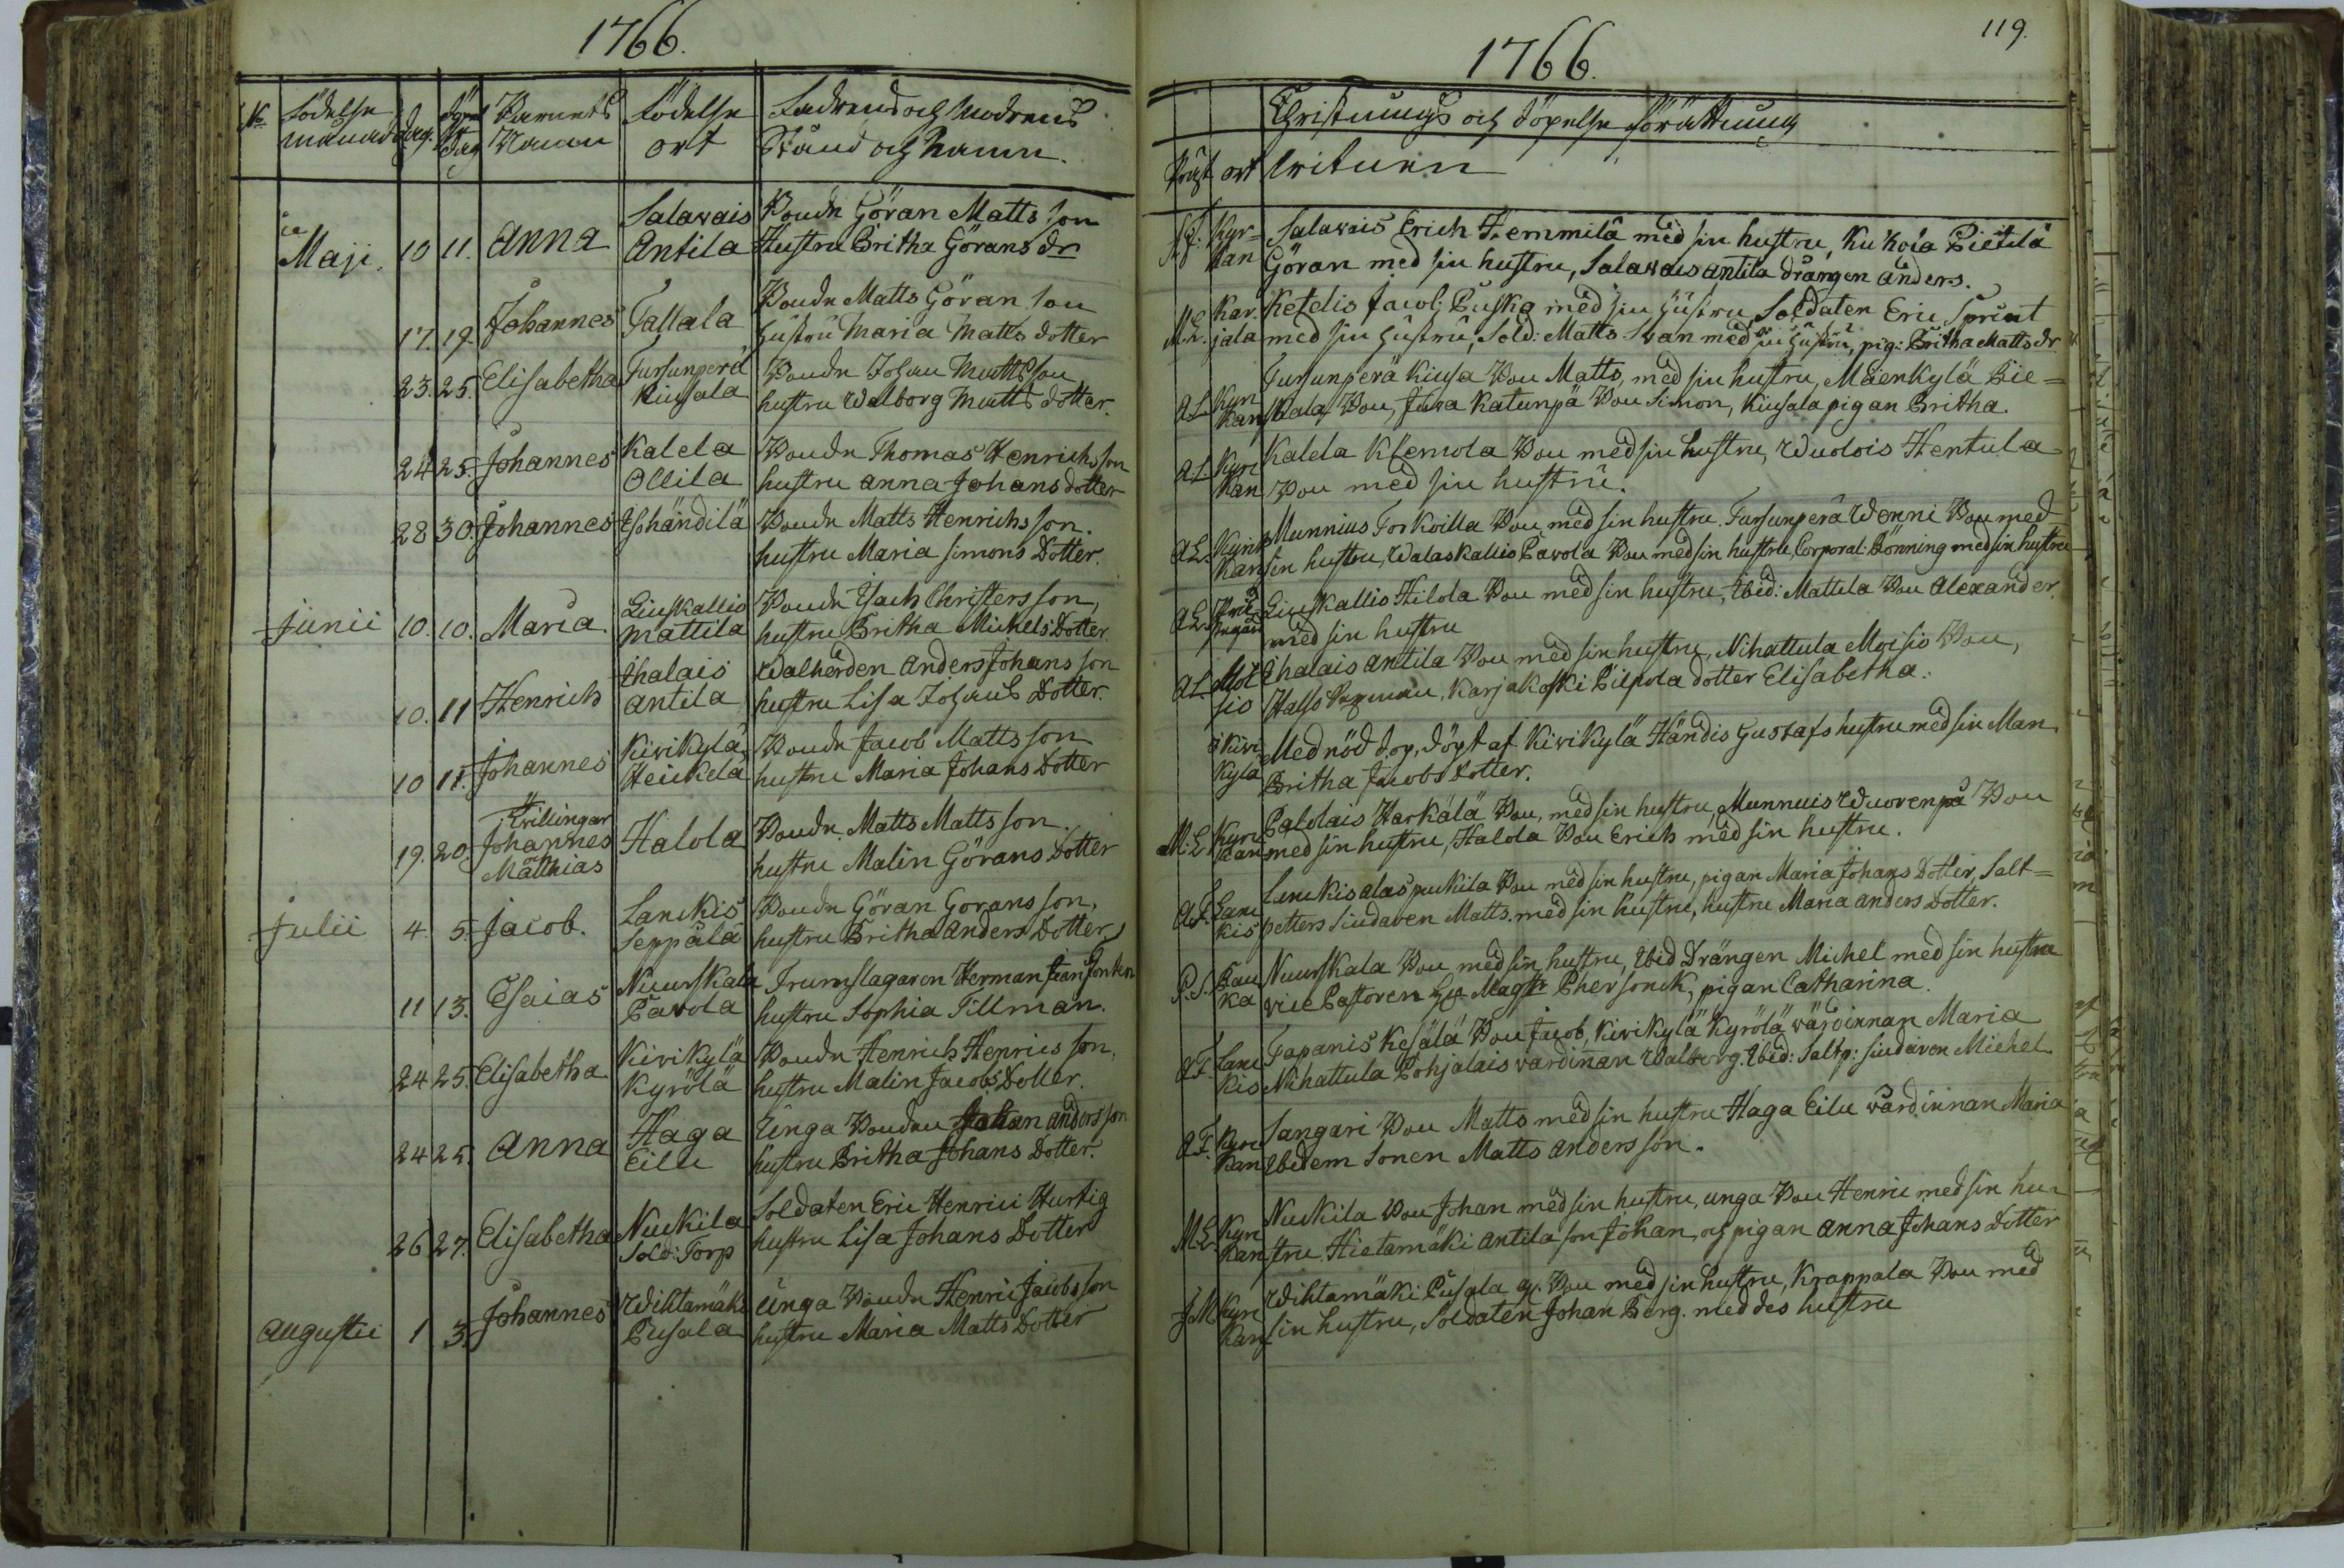 1766.
No Födelse månad dag. Döpelse dag Barnets Namn Födelse ort Fadrens och Modrens Stånd och Namn.
Maji. 10 11. Anna Salawais Bonde Göran Matts son
Antila Hustru Britha Görans dr
17. 19. Johannes Tallala Bonde Matts Göran son
hustru Maria Matts dotter
23. 25. Elisabetha Tursunperä Bonde Johan Matts son
Kiusala hustru Walborg Matts dotter.
24 25. Johannes Kalela Bonde Thomas Henrichs son
Ollila hustru Anna Johans dotter
28 30. Johannes Isohändilä Bonde Matts Henrichs son.
hustru Maria Simons Dotter.
Junii 10. 10. Maria. Liuskallio Bonde Isach Christers son,
Mattila hustru Britha Michels Dotter
10. 11 Henrich Ihalais Walherden Anders Johans son
Antila hustru Lisa Johans Dotter.
10 11. Johannes Kivikylä Bonde Jacob Matts son
Heickelä hustru Maria Johans Dotter
Tvillingar
19. 20. Johannes Halola Bonde Matts Matts son.
Matthias hustru Malin Görans Dotter
Julii 4. 5. Jacob. Lanckis Bonde Göran Gorans son,
Seppälä hustru Britha Anders Dotter
11 13. Esaias Nuurskala Trumslagaren Herman
Pavola hustru Sophia Tillman.
24 25. Elisabetha Kivikylä Bonde Henrich Henrics son,
Kyrölä hustru Malin Jacobs Dotter.
24 25. Anna Haga Unga Bonden Johan Anders son
Eilu hustru Britha Johans Dotter.
26 27. Elisabetha Nuckila Soldaten Eric Henrici Hurtig
Sold: Torp hustru Lisa Johans Dotter
Augustii 1 3. Johannes Wihtamäki Unga Bonde Henric Jacobs son
Pusala hustru Maria Matts Dotter
119.
1766.
Christnings och döpelse förättning
Präst ort Witnen
Kyr= Salawais Erich Hemmilä med sin hustru, Kukoia Pietilä
kan Göran med sin hustru, Salawais Antila drängen Anders.
M.L. Kar. Ketelis Jacob Puska med sin hustru, Soldaten Eric Sprint
jala med sin hustru, Sold: Matts Svan med sin hustru, pig: Britha Matts dr
Tursunperä Kiusa Bon Matts, med sin hustru, Mäenkylä Pie=
A.L. Kyrkan skala Bon, Juva Katunpä Bon Simon, Kiusala pigan Britha.
A.L. Kyr Kalela Klemola Bon med sin hustru, Wuolois Hentula
kan Bon med sin hustru.
A.L. Kyrk Munnius Torkoilla Bon med sin hustru. Tursunperä Wenni Bon med
kan sin hustru, Walaskallio Pavola Bon med sin hustru, Corporal: Dönning med sin hustru
A.L. Liuskallio Hilola Bon med sin hustru, Ibid: Mattila Bon Alexander.
med sin hustru
A.L. Moi Ihalais Antila Bon med sin hustru, Nihattula Moisio Bon,
sio Karjakoski Pilpola dotter Elisabetha.
i Kivi Med nöd dop, döpt af Kivikylä Händis Gustafs hustru med sin Man
kylä Britha Jacobs dotter.
M.L. Kyrc Palolais Harkälä Bon, med sin hustru, Munnuis Wuorenpä Bon
kan med sin hustru, Halola Bon Erich med sin hustru.
Lanckis alaspuckila Bon med sin hustru, pigan Maria Johans Dotter, Salt=
A.F. Lanckis petters siudaren Matts. med sin hustru, hustru Maria Anders Dotter.
P.S. Pau Nuurskala Bon med sin hustru, Ibid Drängen Michel med sin hustru
ka vice Pastoren Hr Magstr Phersonck, pigan Catharina.
Tapanis Kesälä Bon Jacob, Kivikylä Kyrölä värdinnan Maria
A.F. Lanckis Nihattula Pohjalais värdinnan Walborg. Ibid: Saltp: siudaren Michel
Sangari Bon Matts med sin hustru Haga Eilu värdinnan Maria
A.F. Kyrckan Ibidem Sonen Matts Anders son.
Nuckila Bon Johan med sin hustru, unga Bon Henric med sin hu=
M.L. Kyrkan stru. Hietamäki Antila son Johan, och pigan Anna Johans Dotter
Wihtamäki Pusala g. Bon med sin hustru, Krappala Bon med
J.M. Kyrkan sin hustru, Soldaten Johan Berg. med des hustru